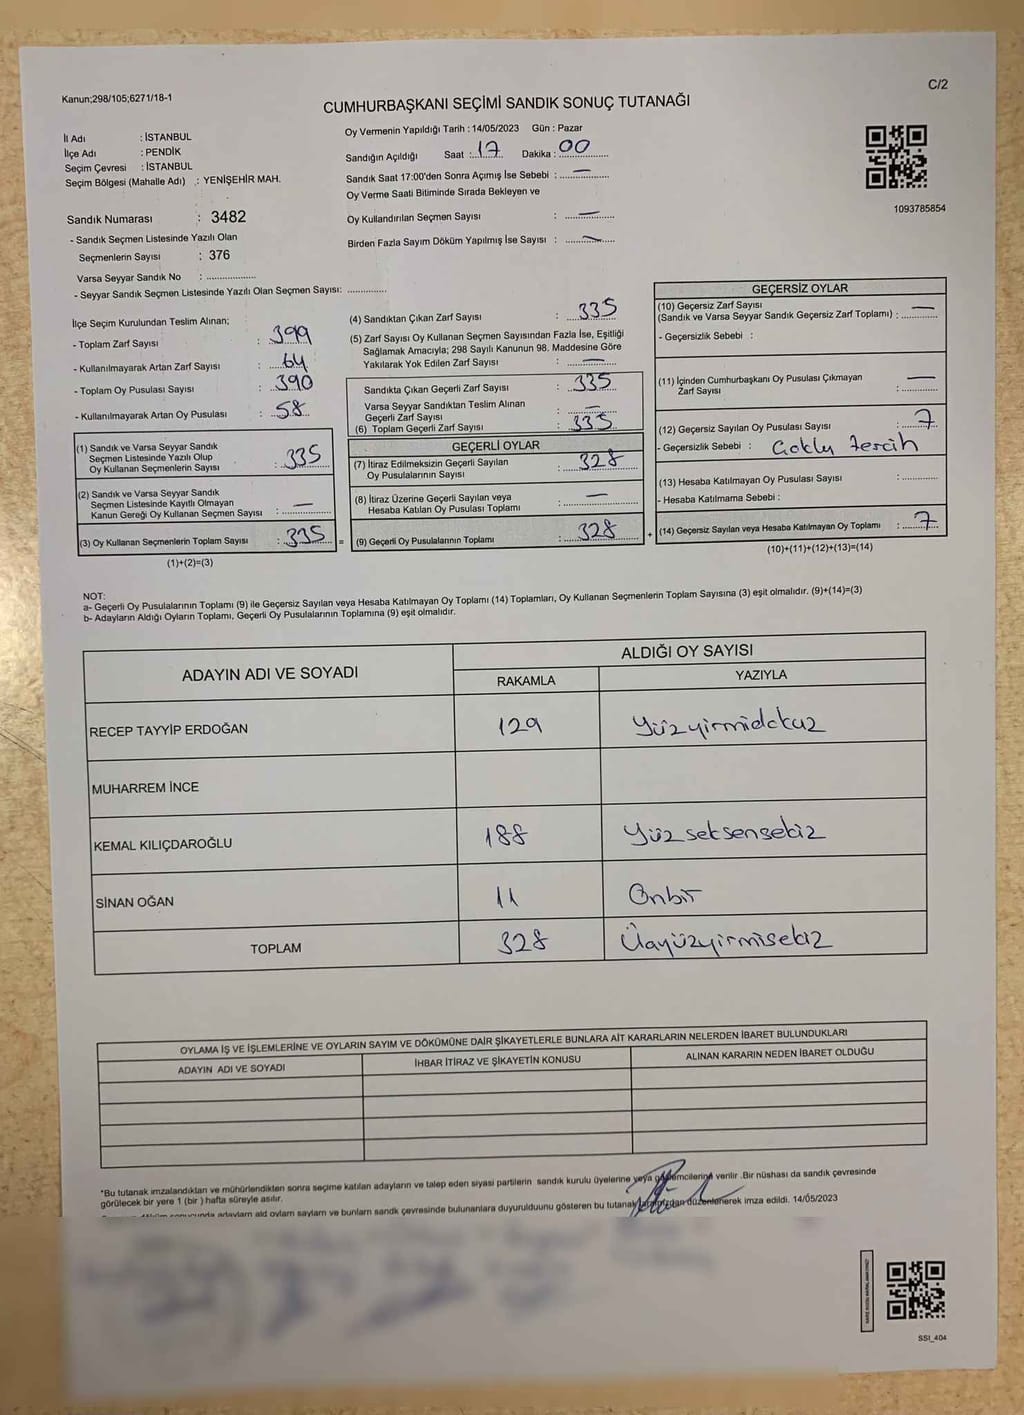 Kanun;298/105;6271/18-1
C/2
CUMHURBAŞKANI SEÇİMİ SANDIK SONUÇ TUTANAĞI
İl Adı : İSTANBUL
İlçe Adı : PENDİK
Seçim Çevresi : İSTANBUL
Seçim Bölgesi (Mahalle Adı) : YENİŞEHİR MAH.
Sandık Numarası : 3482
- Sandık Seçmen Listesinde Yazılı Olan
Seçmenlerin Sayısı : 376
Varsa Seyyar Sandık No : ..................
- Seyyar Sandık Seçmen Listesinde Yazılı Olan Seçmen Sayısı: ..............
Oy Vermenin Yapıldığı Tarih : 14/05/2023 Gün : Pazar
Sandığın Açıldığı Saat : 17 Dakika : 00
Sandık Saat 17:00'den Sonra Açımış İse Sebebi : —
Oy Verme Saati Bitiminde Sırada Bekleyen ve
Oy Kullandırılan Seçmen Sayısı : —
Birden Fazla Sayım Döküm Yapılmış İse Sayısı : —
1093785854
İlçe Seçim Kurulundan Teslim Alınan;
- Toplam Zarf Sayısı : 399
- Kullanılmayarak Artan Zarf Sayısı : 64
- Toplam Oy Pusulası Sayısı : 390
- Kullanılmayarak Artan Oy Pusulası : 58
(1) Sandık ve Varsa Seyyar Sandık
Seçmen Listesinde Yazılı Olup
Oy Kullanan Seçmenlerin Sayısı : 335
(2) Sandık ve Varsa Seyyar Sandık
Seçmen Listesinde Kayıtlı Olmayan
Kanun Gereği Oy Kullanan Seçmen Sayısı : —
(3) Oy Kullanan Seçmenlerin Toplam Sayısı : 335 =
(1)+(2)=(3)
(4) Sandıktan Çıkan Zarf Sayısı : 335
(5) Zarf Sayısı Oy Kullanan Seçmen Sayısından Fazla İse, Eşitliği
Sağlamak Amacıyla; 298 Sayılı Kanunun 98. Maddesine Göre
Yakılarak Yok Edilen Zarf Sayısı : —
Sandıkta Çıkan Geçerli Zarf Sayısı : 335
Varsa Seyyar Sandıktan Teslim Alınan
Geçerli Zarf Sayısı : —
(6) Toplam Geçerli Zarf Sayısı : 335
GEÇERLİ OYLAR
(7) İtiraz Edilmeksizin Geçerli Sayılan
Oy Pusulalarının Sayısı : 328
(8) İtiraz Üzerine Geçerli Sayılan veya
Hesaba Katılan Oy Pusulası Toplamı : —
(9) Geçerli Oy Pusulalarının Toplamı : 328 +
GEÇERSİZ OYLAR
(10) Geçersiz Zarf Sayısı
(Sandık ve Varsa Seyyar Sandık Geçersiz Zarf Toplamı) : —
- Geçersizlik Sebebi :
(11) İçinden Cumhurbaşkanı Oy Pusulası Çıkmayan
Zarf Sayısı : —
(12) Geçersiz Sayılan Oy Pusulası Sayısı : 7
- Geçersizlik Sebebi : Çoklu tercih
(13) Hesaba Katılmayan Oy Pusulası Sayısı : ............
- Hesaba Katılmama Sebebi :
(14) Geçersiz Sayılan veya Hesaba Katılmayan Oy Toplamı : 7
(10)+(11)+(12)+(13)=(14)
NOT:
a- Geçerli Oy Pusulalarının Toplamı (9) ile Geçersiz Sayılan veya Hesaba Katılmayan Oy Toplamı (14) Toplamları, Oy Kullanan Seçmenlerin Toplam Sayısına (3) eşit olmalıdır. (9)+(14)=(3)
b- Adayların Aldığı Oyların Toplamı, Geçerli Oy Pusulalarının Toplamına (9) eşit olmalıdır.
ADAYIN ADI VE SOYADI
ALDIĞI OY SAYISI
RAKAMLA YAZIYLA
RECEP TAYYİP ERDOĞAN 129 Yüzyirmidokuz
MUHARREM İNCE
KEMAL KILIÇDAROĞLU 188 Yüzseksensekiz
SİNAN OĞAN 11 Onbir
TOPLAM 328 Üçyüzyirmisekiz
OYLAMA İŞ VE İŞLEMLERİNE VE OYLARIN SAYIM VE DÖKÜMÜNE DAİR ŞİKAYETLERLE BUNLARA AİT KARARLARIN NELERDEN İBARET BULUNDUKLARI
ADAYIN ADI VE SOYADI İHBAR İTİRAZ VE ŞİKAYETİN KONUSU ALINAN KARARIN NEDEN İBARET OLDUĞU
*Bu tutanak imzalandıktan ve mühürlendikten sonra seçime katılan adayların ve talep eden siyasi partilerin sandık kurulu üyelerine veya gözlemcilerine verilir .Bir nüshası da sandık çevresinde
görülecek bir yere 1 (bir ) hafta süreyle asılır.
sonucunda adayların ald oyların sayların ve bunların sandk çevresinde bulunanlara duyurulduunu gösteren bu tutanak düzenlenerek imza edildi. 14/05/2023
SSI_404